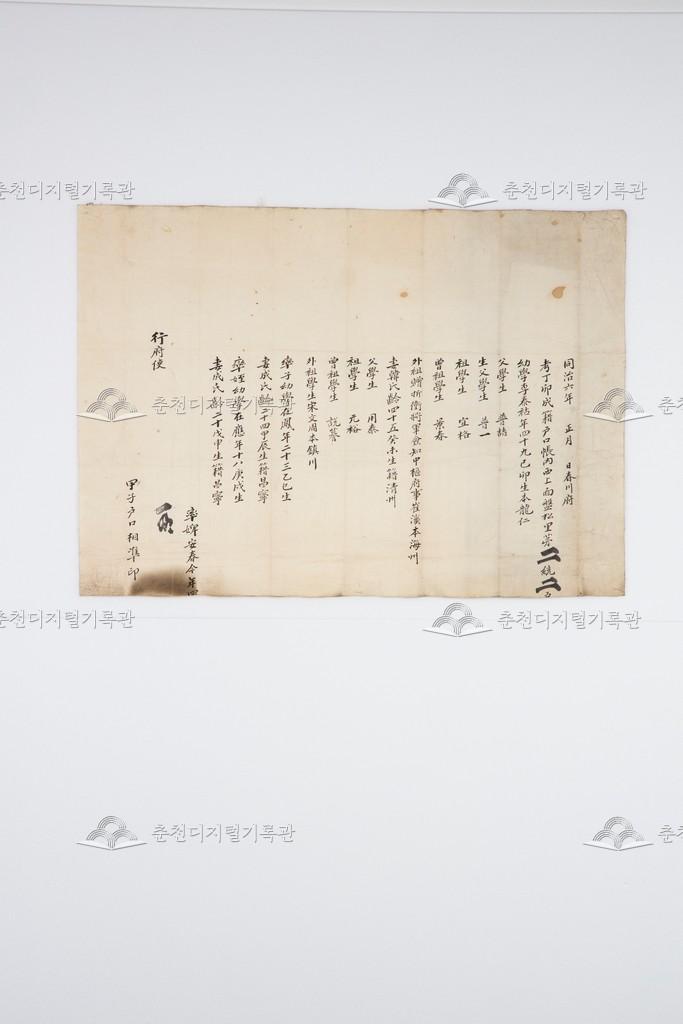 同治六年 正月 日春川府
考丁卯成籍戶口帳內西上面盤松里第二統二
幼學李泰祜年四十九己卯生本龍仁
父學生 普喆
生父學生 普一
祖學生 宜格
曾祖學生 景春
外祖贈折衝將軍僉知中樞府事崔漢本海州
妻韓氏齡四十五癸未生籍淸州
父學生 用泰
祖學生 元裕
曾祖學生 說
外祖學生宋文周本鎭川
率子幼學在鳳年二十三乙巳生
妻成氏齡二十四甲辰生籍昌寧
率姪幼學在應年十八庚戌生
妻成氏齡二十戊申生籍昌寧
率婢安春今年四
行府使
甲子戶口相準印
춘천디지털기록관
춘천디지털기록관
춘천디지털기록관
춘천디지털기록관
춘천디지털기록관
춘천디지털기록관